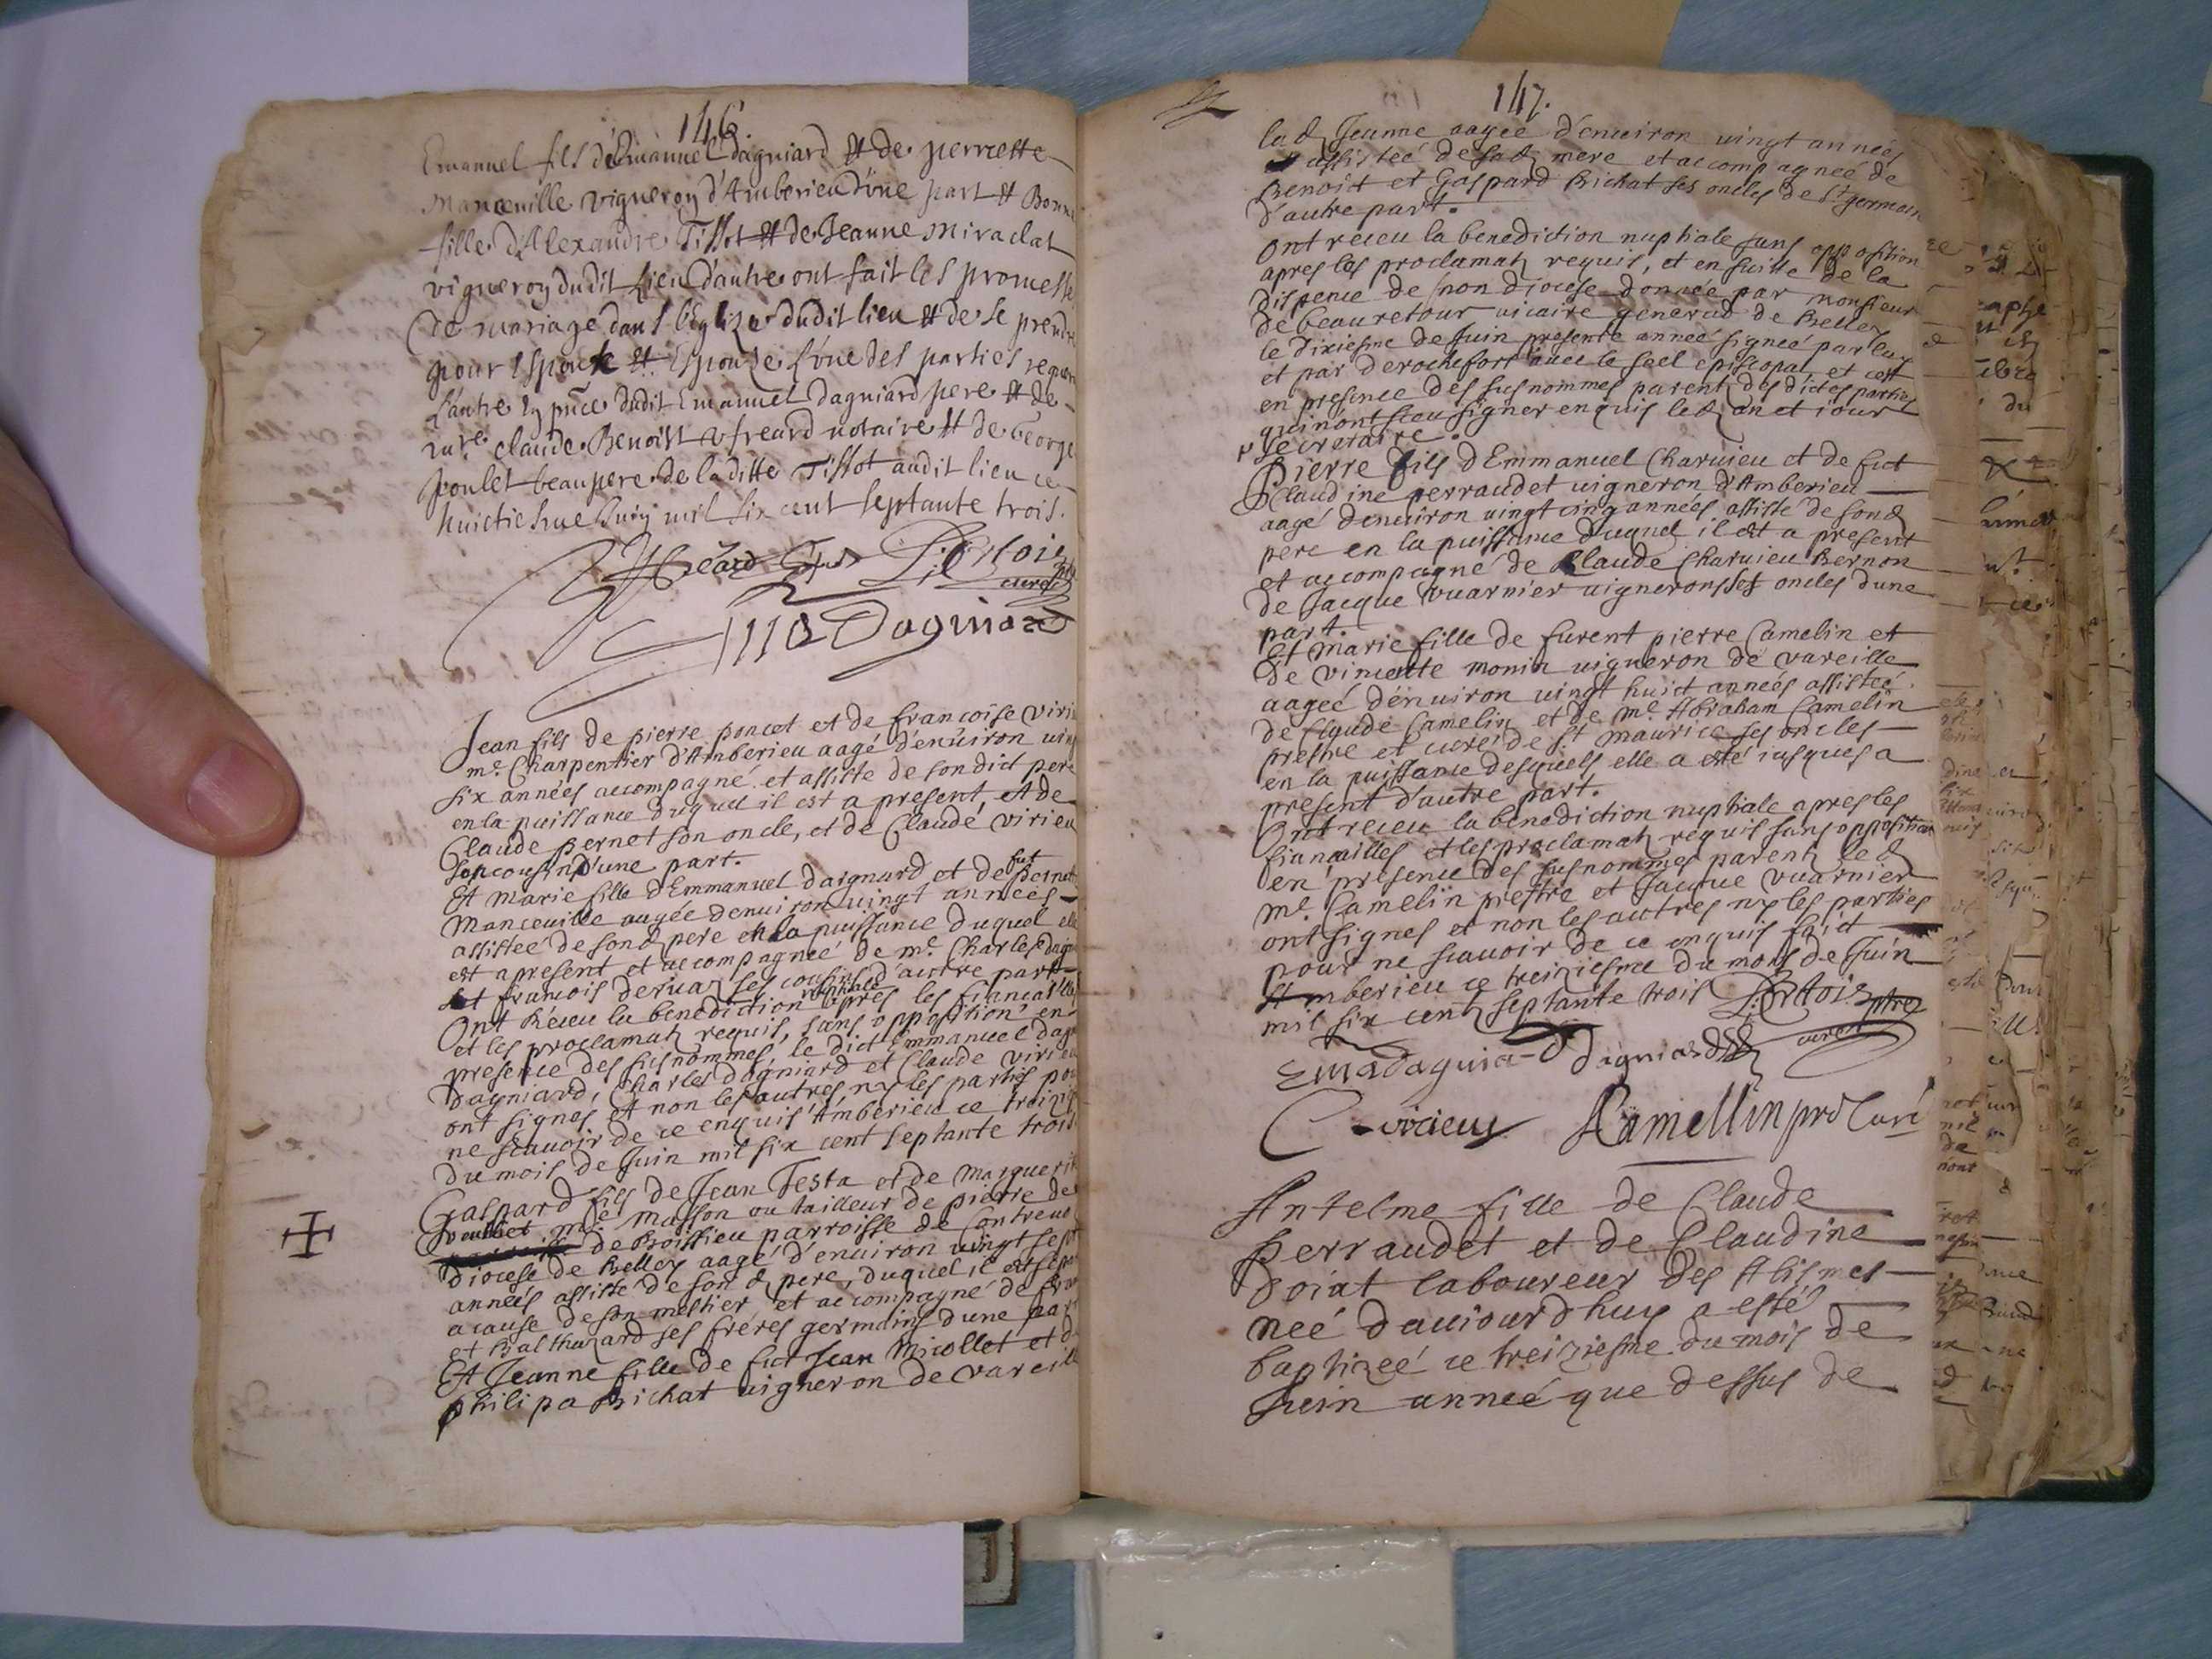 146.
Emanuel fils d'Emanuel Dagniard et de perrette
manceuille vigneron d'Amberieu d'une part et Bonne
fille d'Alexandre Tissot et de Jeanne miraclat
vigneron dudit lieu d'autre ont fait les promesse
de mariage dans l'Eglize dudit lieu et de se prendre
pour espoux et espouze l'une des parties reque
l'autre En pnce dudit Emanuel Dagniard pere et de
claude Benoist notaire et de George
poulet beaupere de laditte Tissot audit lieu ce
huictiesme Juin mil six cent septante trois.
curé
Dagniard
Jean fils de pierre poncet et de francoise viri
me. Charpentier d'Amberieu aagé d'enuiron uing
six années accompagné et assiste de sondict pere
en la puissance duquel il est a present, et de
Claude pernot son oncle, et de Claude virieu
son cousin d'une part.
Et marie fille d'Emmanuel daignard et de fut pernet
Manceuille aagée d'enuiron uingt années
assistée de sond pere en la puissance duquel elle
est a present et accompagneé de me. Charles dagn
et francois deruaz ses cousins d'autre part
Ont Receu la benediction nuptiale apres les fiancailles
et les proclamatz requis, sans opposition en
presence des susnommes, le dict Emmanuel dagn
Dagniard, Charles Dagniard et Claude virieu
ont signes et non les autres ny les parties pou
ne scauoir de ce enquis Amberieu ce treizi
du mois de Juin mil six cent septante trois
Gaspard fils de Jean Testa et de marguerit
me. masson ou tailleur de pierre de
de Boissieu parroisse de Contreuo
diocese de Belley aagé d'enuiron uingt sept
années assisté de son d pere, duquel il est sepa
a cause de son mestier et accompagné de fran
et Balthazard ses freres germains d'une par
Et Jeanne fille de fut Jean micollet et d
philipa Bichat uigneron de vareille
147.
lad Jeanne aageé d'enuiron uingt années
assisteé de sad mere et accompagneé de
Benoict et Gaspard Bichat ses oncles de St germain
d'autre part.
Ont receu la benediction nuptiale sans opposition
apres les proclamatz requis, et en suitte de la
dispence de son diocese donnée par monsieur
de beauretour uicaire general de Belley
le dixiesme de Juin presente anneé signeé par luy
et par derochefort auec le seel episcopal et cest
en presence des susnommes parent des dictes parties
qui n'ont sceu signer enquis led an et iour
secretaire.
Pierre fils d'Emmanuel Charuieu et de fut
Claudine perraudet uigneron d'Amberieu
aagé d'enuiron uingt cinq années assisté de sond
pere en la puissance duquel il est a present
et accompagné de Claude Charuieu Bernon
de Jacque vuarnier uignerons ses oncles d'une
part.
Et marie fille de furent pierre Camelin et
de vincente monin uigneron de vareille
aageé d'enuiron uingt huict années assisteé
de Claude Camelin et de me. Abraham Camelin
prestre et curé de St maurice ses oncles
en la puissance desquels elle a esté iusques a
present d'autre part.
Ont receu la benediction nuptiale apres les
fiancailles et les proclamatz requis sans opposition
en presence des susnommes parentz led
me. Camelin prestre et Jacque vuarnier
ont signes et non les autres ny les parties
pour ne scauoir de ce enquis faict
Amberieu ce treiziesme du mois de Juin
mil six centz septante trois
curé
Emadaguiard Dagniard
C virieu Camellin pro Curé
Antelme fille de Claude
perraudet et de Claudine
Doiat laboureur des Alismes
neé d'auiourd'huy a esté
baptizeé ce treiziesme du mois de
Juin anneé que dessus de